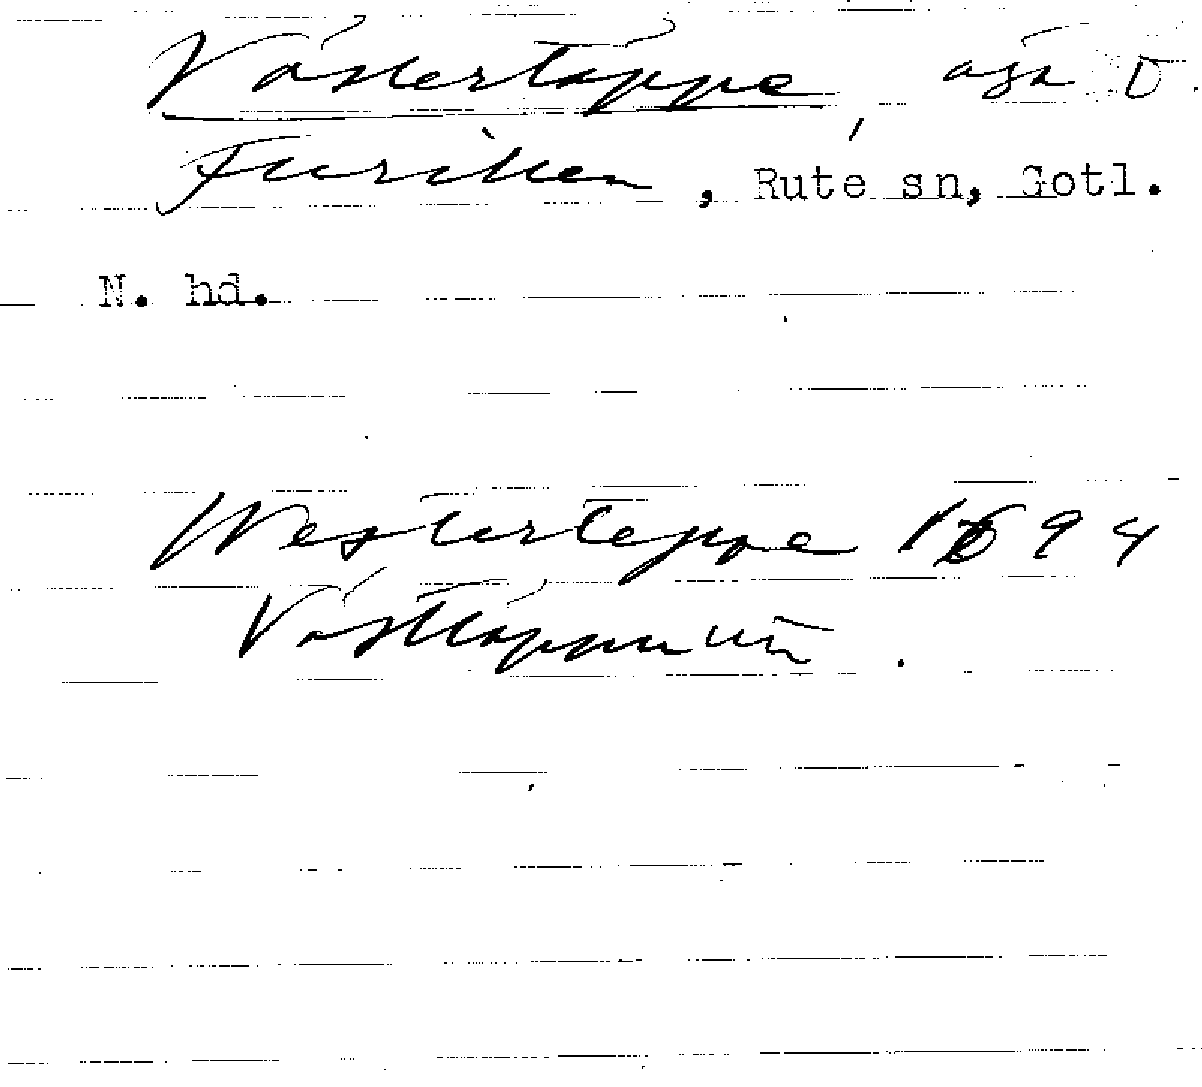 Västertäppe, äga D.
Furillen, Rute sn, Gotl.
N. hd.
Westerteppe 1694
Västtäppu